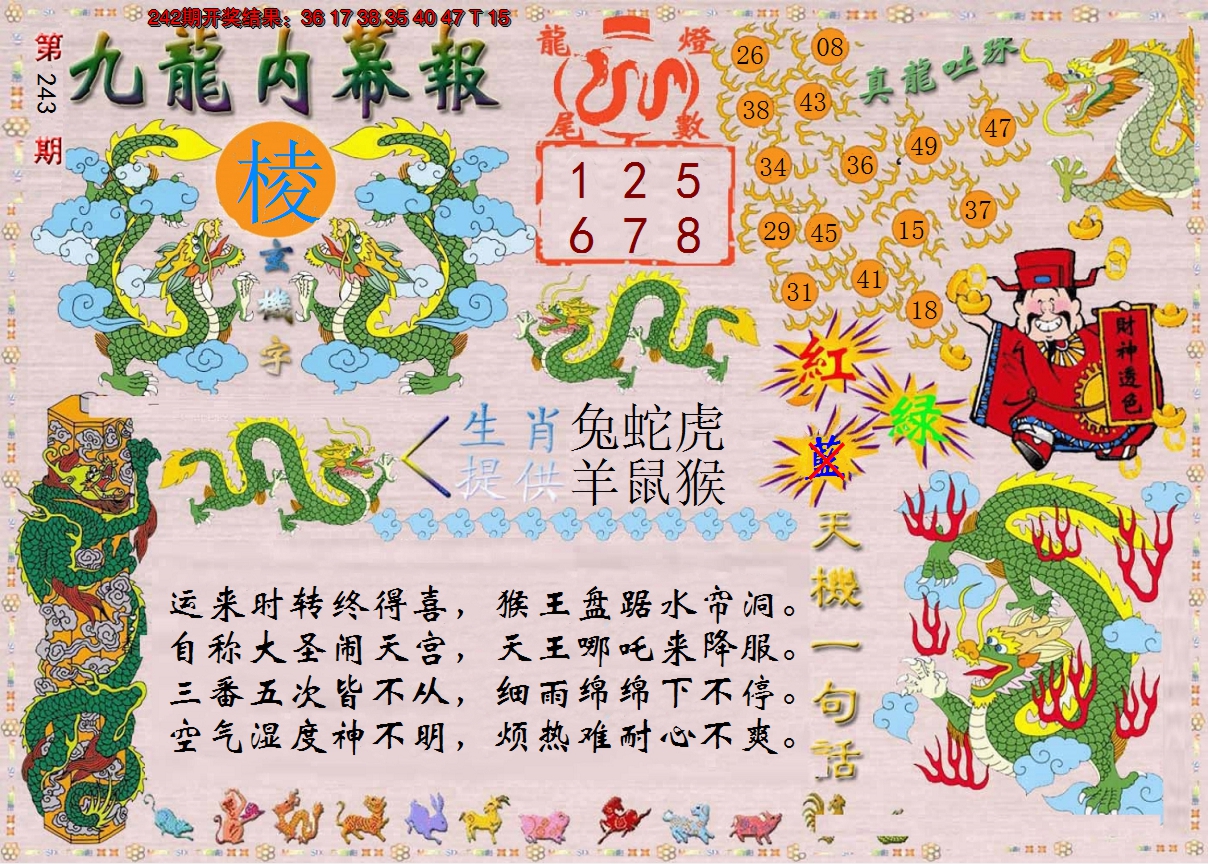 242期开奖结果：36 17 38 35 40 47 T 15
第
243
期
九龍内幕報
棱
玄
機
字
龍 燈
尾 數
1 2 5
6 7 8
真龍吐珠
26
08
38
43
34
36
49
47
29
45
15
37
31
41
18
財神透色
紅
綠
藍
生肖 兔蛇虎
提供 羊鼠猴
天機一句話
运来时转终得喜，猴王盘踞水帘洞。
自称大圣闹天宫，天王哪吒来降服。
三番五次皆不从，细雨绵绵下不停。
空气湿度神不明，烦热难耐心不爽。